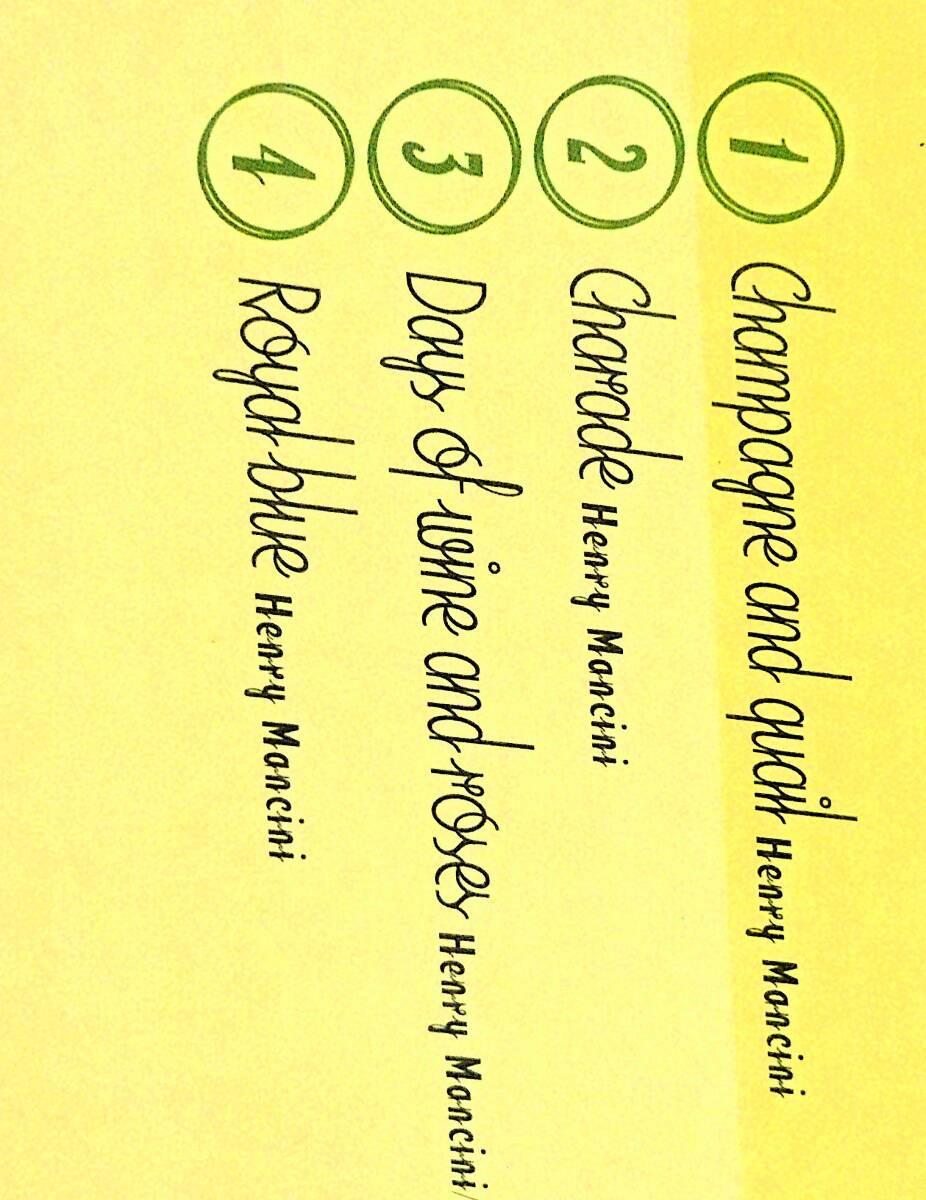 1 Champagne and quail Henry Mancini
2 Charade Henry Mancini
3 Days of wine and roses Henry Mancini/
4 Royal blue Henry Mancini